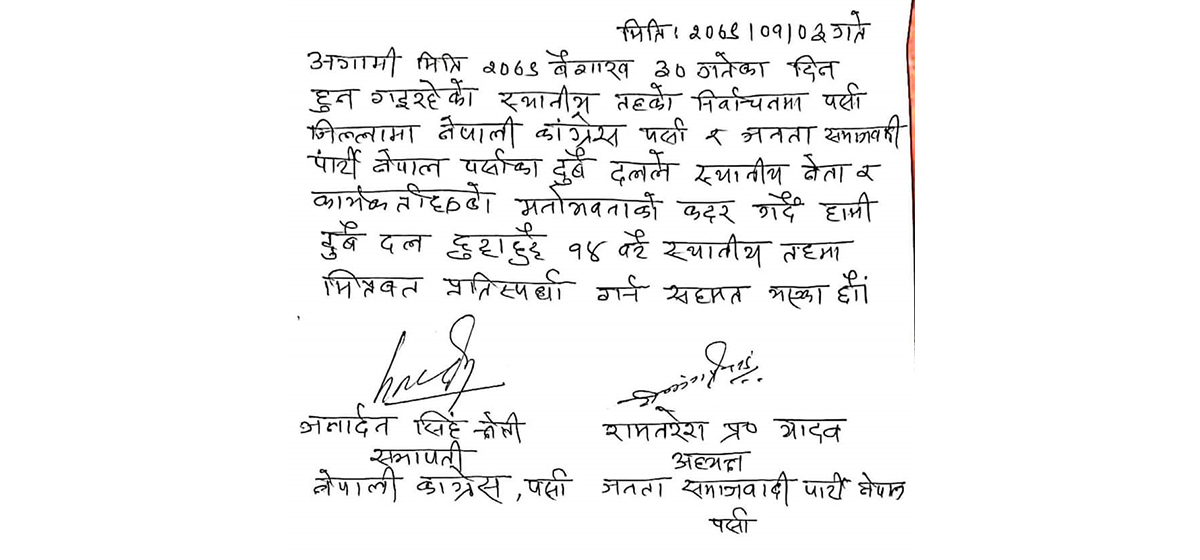 मिति: २०७९।०१।०३ गते
अगामी मिति २०७९ बैशाख ३० गतेका दिन
हुन गइरहेको स्थानीय तहको निर्वाचनमा पर्सा
जिल्लामा नेपाली कांग्रेस पर्सा र जनता समाजवादी
पार्टी नेपाल पर्साका दुबै दलले स्थानीय नेता र
कार्यकर्ताहरुको मनोभवताको कदर गर्दै हामी
दुबै दल १४ वटै स्थानीय तहमा
मित्रवत प्रतिस्पर्धा गर्न सहमत भएका छौं।
जनार्दन सिंह क्षेत्री
सभापती
नेपाली कांग्रेस, पर्सा
रामनरेश प्र० यादव
अध्यक्ष
जनता समाजवादी पार्टी नेपाल
पर्सा